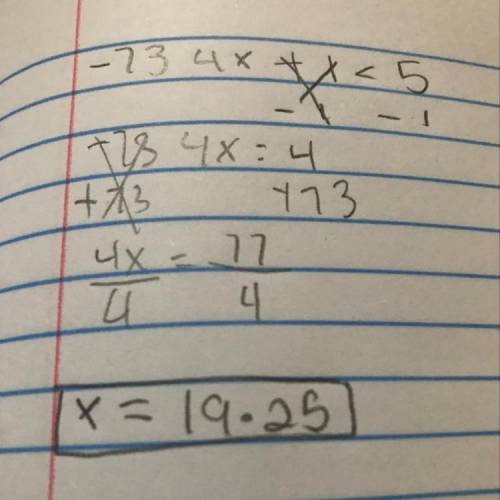 -73 4x + 1 < 5
- 1 - 1
-73 4x = 4
+73 +73
4x = 77
4 4
x = 19.25